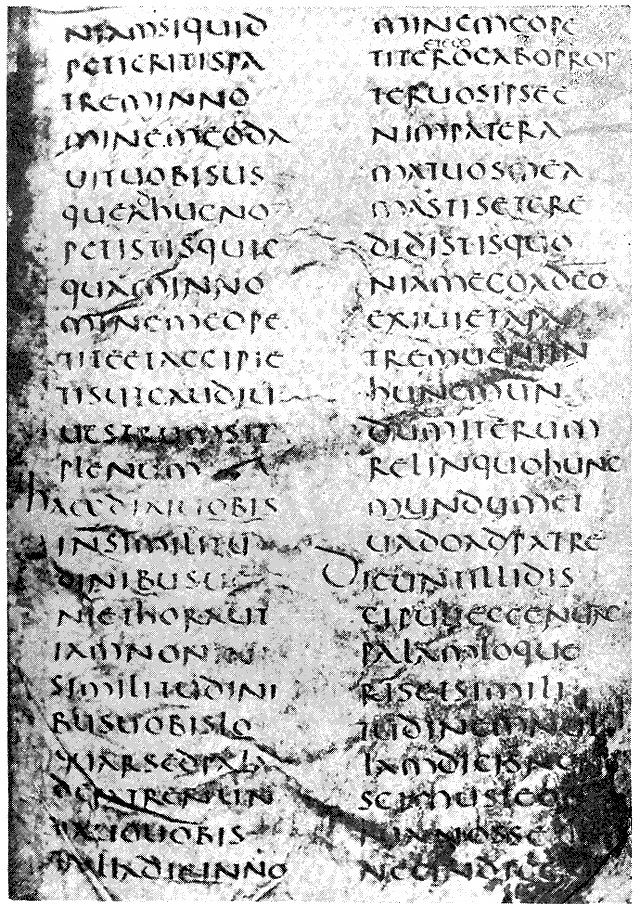 NIAMSIQUID
PETIERITISPA
TREMINNO
MINEMEODA
UITUOBISUS
QUEADHUCNO
PETISTISQUIC
QUAMINNO
MINEMEOPE
TITEETACCIPIE
TISUTGAUDIU
UESTRUMSIT
PLENUM
HAECDIXIUOBIS
INSIMILITU
DINIBUSUE
NIETHORAUT
IAMNON
SIMILITUDINI
BUSUOBISLO
QUARSEDPALA
DEPATRENUN
UOBIS
ILLADIEINNO
MINEMEOPE
ETEGO
TITEROGABOPROP
TERUOSIPSEE
NIMPATERA
MATUOSMEA
MASTISETCRE
DIDISTISQUO
NIAMEGOADEO
EXIUIETAPA
TREMUENIIN
HUNCMUN
DUMITERUM
RELINQUOHUNC
MUNDUMET
UADOADPATRE
DICUNTILLIDIS
CIPULIECCENUNC
PALAMLOQUE
RISETSIMILI
TUDINEMNU
IAMDICISNU
SCIMUSTEO
NIANOSSE
NECINDIGE